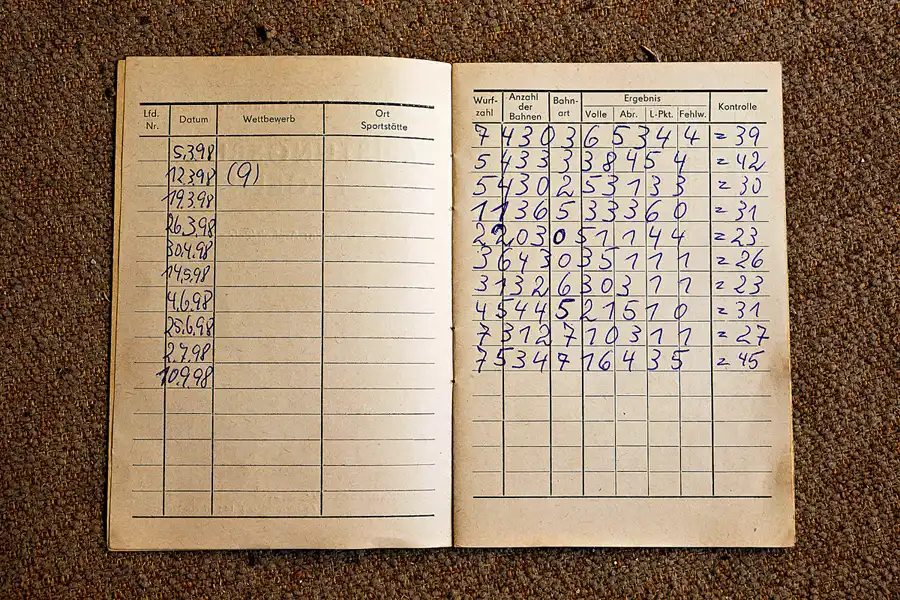 Lfd. Nr. Datum Wettbewerb Ort Sportstätte
5.3.98
12.3.98 (9)
19.3.98
26.3.98
30.4.98
14.5.98
4.6.98
25.6.98
2.7.98
10.9.98
Wurf- zahl Anzahl der Bahnen Bahn- art Ergebnis Kontrolle
Volle Abr. L-Pkt. Fehlw.
7 4 3 0 3 6 5 3 4 4 = 39
5 4 3 3 3 3 8 4 5 4 = 42
5 4 3 0 2 5 3 1 3 3 = 30
1 1 3 6 5 3 3 3 6 0 = 31
2 2 0 3 0 5 1 1 4 4 = 23
3 6 4 3 0 3 5 1 1 1 = 26
3 1 3 2 6 3 0 3 1 1 = 23
4 5 4 4 5 2 1 5 1 0 = 31
7 3 1 2 7 1 0 3 1 1 = 27
7 5 3 4 7 1 6 4 3 5 = 45